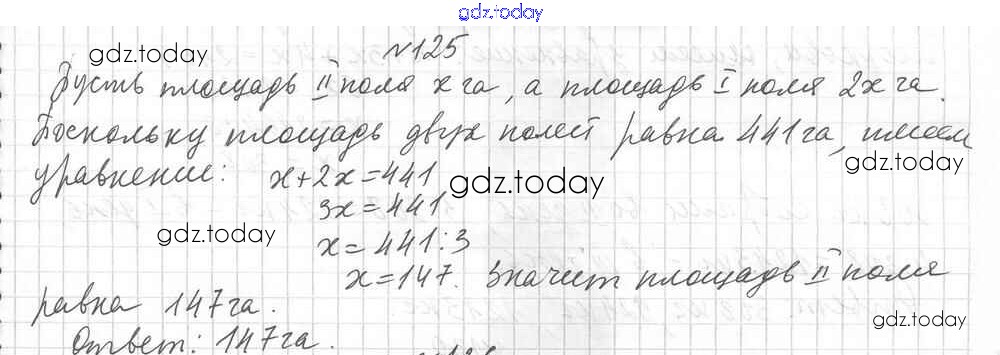 gdz.today
№125
gdz.today
Пусть площадь II поля x га, а площадь I поля 2x га.
Поскольку площадь двух полей равна 441 га, имеем
gdz.today
уравнение: x+2x=441
gdz.today
3x=441
gdz.today
x=441:3
x=147. Значит площадь II поля
равна 147га.
gdz.today
Ответ: 147га.